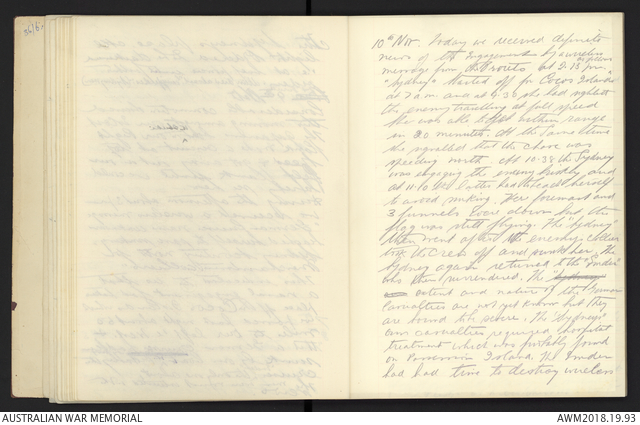 10th Nov. Today we received definite
news of the engagement by wireless
message from at 3.15 pm.
"Sydney" started off for Cocos Island
at 7 am and at 9.30 she had sighted
the enemy travelling at full speed
She was able to get within range
in 20 minutes. At the same time
she signalled that the chase was
speeding north. At 10.38 the Sydney
was engaging the enemy briskly and
at 11.10 the latter had to beach herself
to avoid sinking. Her foremast and
3 funnels were down but the
flag was still flying. The "Sydney"
then went after the enemy's collier
took the crew off and sunk her. The
Sydney again returned to the "Emden"
who then surrendered. The "Sydney
extent and nature of the German
casualties are not yet known but they
are bound to be severe. The "Sydneys"
own casualties required hospital
treatment which was probably found
on Island. The Emden
had had time to destroy wireless
AUSTRALIAN WAR MEMORIAL
AWM2018.19.93